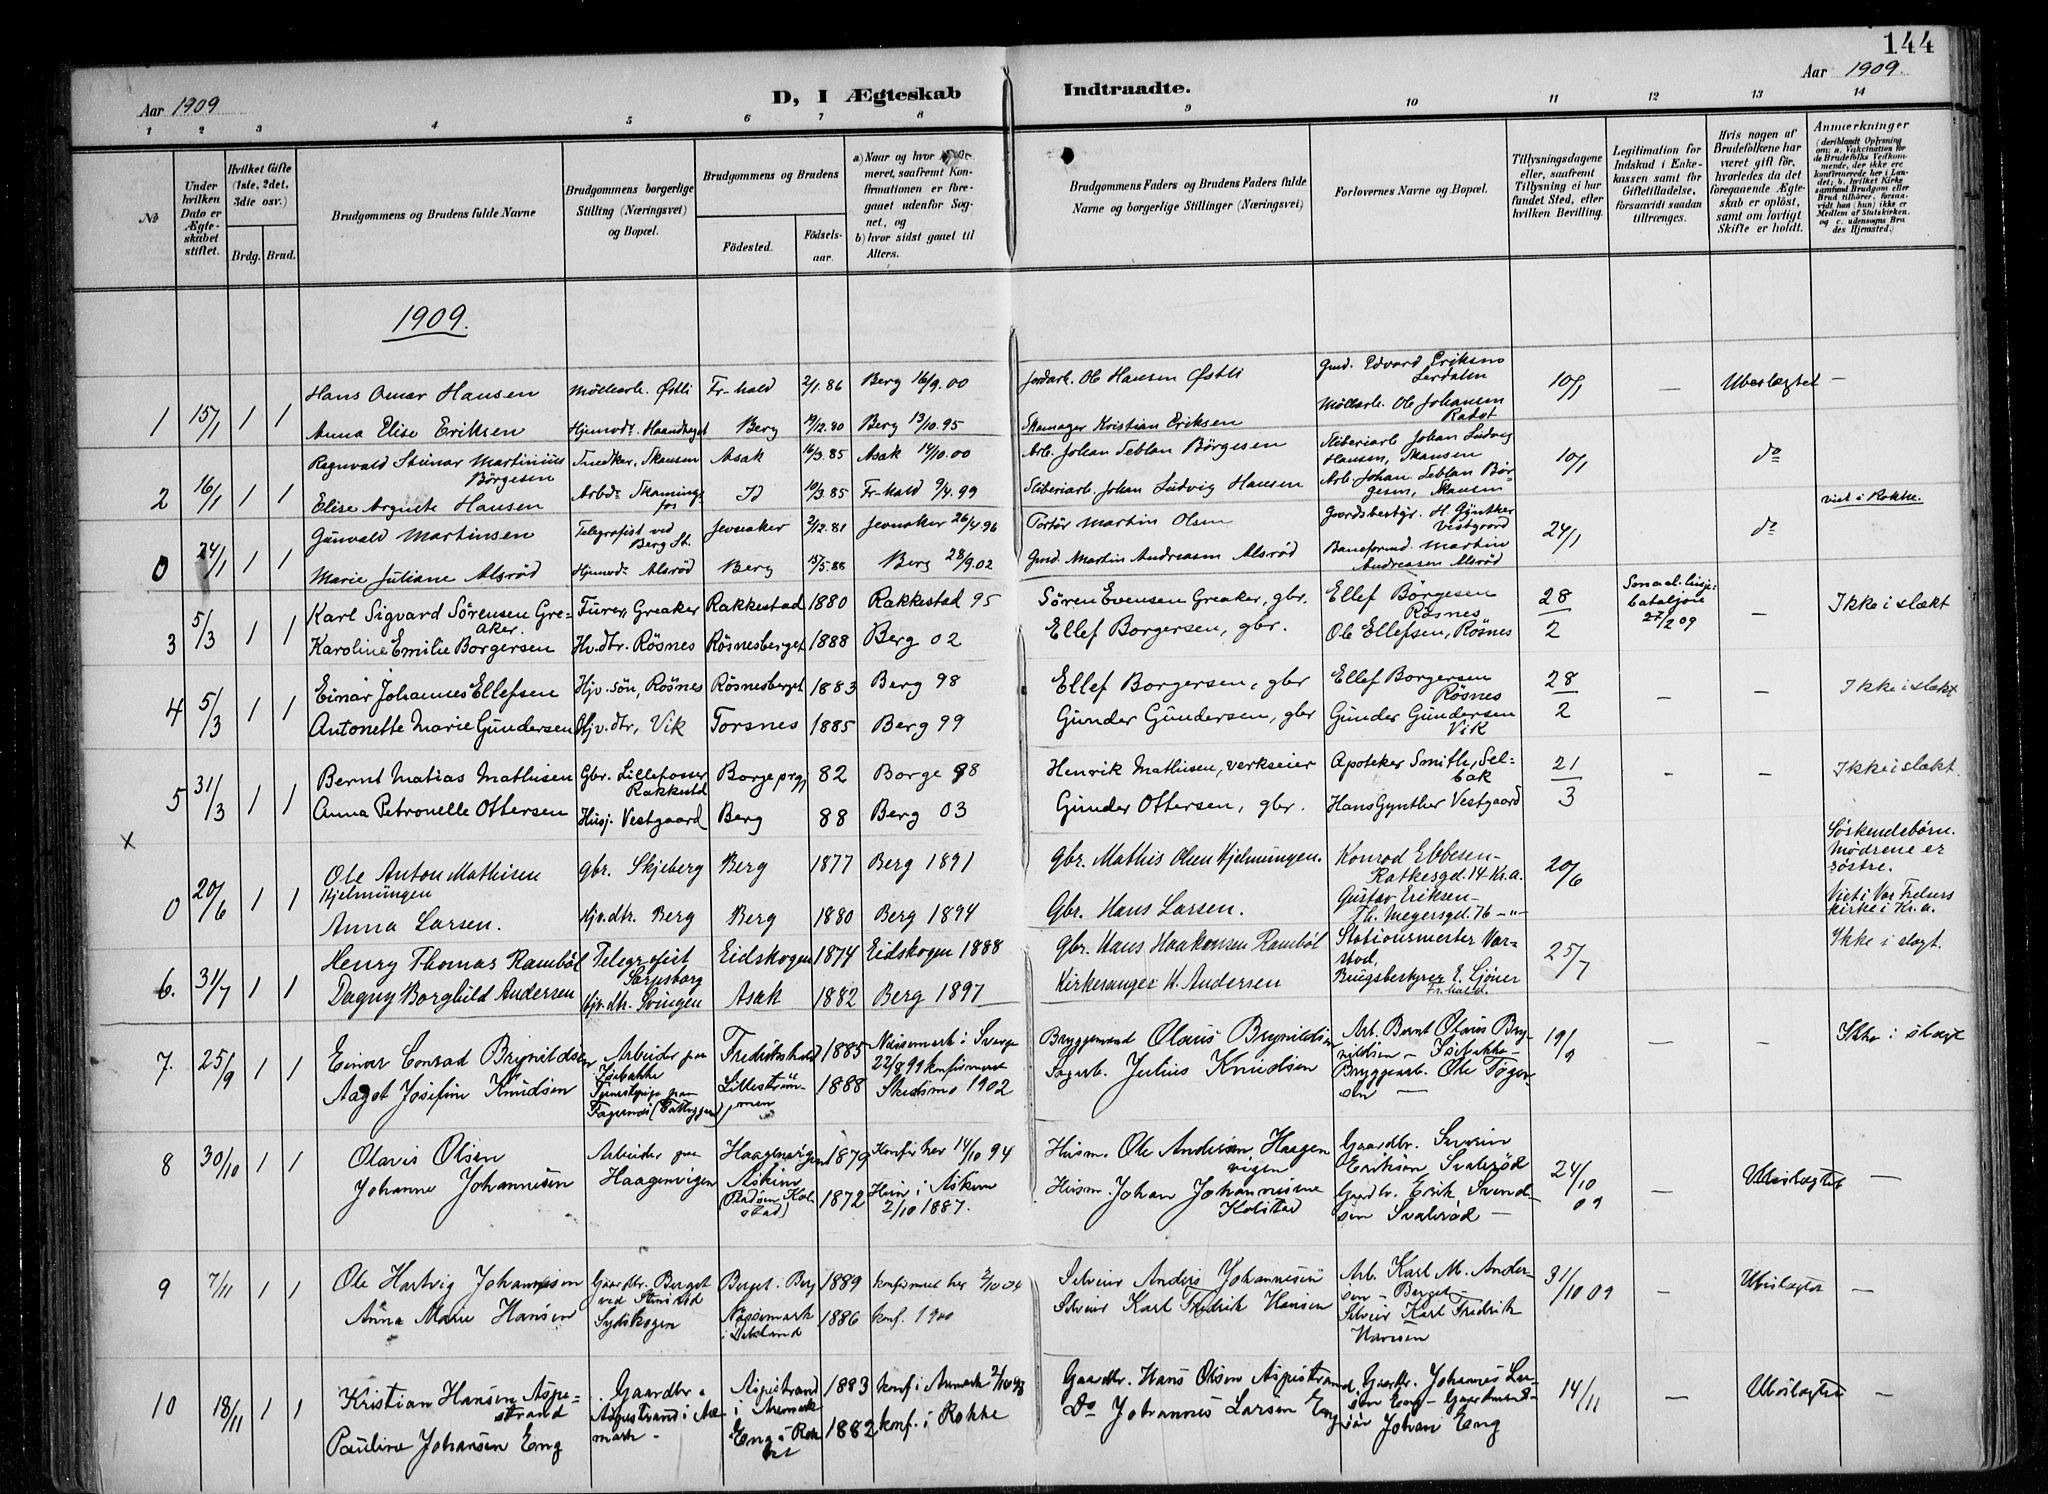 144
Aar 1909
D, I Ægteskab
Indtraadte.
Aar 1909.
1 2 3 4 5 6 7 8 9 10 11 12 13 14
No
Under hvilken Dato er Ægteskabet stiftet.
Hvilket Gifte (1ste, 2det, 3die osv.)
Brdg. Brud.
Brudgommens og Brudens fulde Navne
Brudgommens borgerlige Stilling (Næringsvei) og Bopæl.
Brudgommens og Brudens
Födested.
Födselsaar.
a) Naar og hvor
meret, saafremt Konfirmationen er foregaaet udenfor Sognet, og
b) hvor sidst gaaet til Alters.
Brudgommens Faders og Brudens Faders fulde Navne og borgerlige Stillinger (Næringsvei)
Forlovernes Navne og Bopæl.
Tillysningsdagene eller, saafremt Tillysning ei har fundet Sted, efter hvilken Bevilling.
Legitimation for Indskud i Enkekassen samt for Giftetilladelse, forsaavidt saadan tiltrænges.
Hvis nogen af Brudefolkene har været gift för, hvorledes da det foregaaende Ægteskab er oplöst, samt om lovligt Skifte er holdt.
Anmærkninger
(deriblandt Oplysning om: a. Vakcination for de Brudefolks Vedkommende, der ikke ere konfirmerede her i Landet; b. hvilket Kirkesamfund Brudgom eller Brud tilhörer, forsaavidt han (hun) ikke er Medlem af Statskirken, og c. udensogns Brudes Hjemsted.)
1909.
1 15/1 1 1 Hans Omar Hansen Möllearb. Østli Fr-hald 2/1.86 Berg 16/9.00 Jordarb. Ole Hansen Østli Gmd. Edvard Eriksen Lerdalen 10/1 — Ubeslægtet —
Anna Elise Eriksen Hjemvdt. Haandteget Berg 19/12.80 Berg 13/10.95 Skomager Kristian Eriksen Möllearb. Ole Johansen
2 16/1 1 1 Ragnvald Martinius Börgesen Snedker, Skansen Asak 16/3.85 Asak 14/10.00 Arb. Johan Teblan Börgesen Sliberiarb Johan Ludvig Hansen, Skansen 10/1 do
Elise Hansen Id 10/3.85 Fr-hald 9/4.99 Sliberiarb. Johan Ludvig Hansen Arb. Johan Teblan Börgesen, Skansen viet i Rokke.
0 24/1 1 1 Gunvald Martinsen Telegrafist ved Berg St. Jevnaker 2/12.81 Jevnaker 26/4.96 Portör Martin Olsen Gaardsbestyr. H. Gynther Vestgaard 24/1 do
Marie Juliane Alsröd Hjemvdt. Alsröd Berg 15/5.88 Berg 28/9.02 Gmd. Martin Andreasen Alsröd Baneformd. Martin Andreasen Alsröd
3 5/3 1 1 Karl Sigvard Sörensen Greaker. Furer, Greaker Rakkestad 1880 Rakkestad 95 Sören Evensen Greaker, gbr. Ellef Börgesen Rösnes 28/2 27/2 09 — Ikke i slækt
Karoline Emilie Borgersen Hv.dtr. Rösnes Rösnesberget 1888 Berg 02 Ellef Borgersen, gbr. Ole Ellefsen, Rösnes
4 5/3 1 1 Einar Johannes Ellefsen Hjv. sön, Rösnes Rösnesberget 1883 Berg 98 Ellef Borgersen, gbr Ellef Borgersen Rösnes 28/2 — — Ikke i slækt
Antonette Marie Gundersen Hjv. dtr, Vik Torsnes 1885 Berg 99 Gunder Gundersen, gbr Gunder Gundersen Vik
5 31/3 1 1 Bernt Matias Mathisen Gbr. Lillefosser Rakkestd Borge prgj. 82 Borge 98 Henrik Mathisen, verkseier Apoteker Smith, Selbak 21/3 — — Ikke i slækt.
Anna Petronelle Ottersen Husj. Vestgaard Berg 88 Berg 03 Gunder Ottersen, gbr. Hans Gynther Vestgaard
x
0 20/6 1 1 Ole Anton Mathisen Hjelmungen Gbr. Skjeberg Berg 1877 Berg 1891 Gbr. Mathis Olsen Hjelmungen. Konrad Ebbesen- Ratkesgd. 14 Kr.a. 20/6 Söskendebörn. Mödrene er söstre.
Anna Larsen. Hjv.dtr. Berg Berg 1880 Berg 1894 Gbr. Hans Larsen. Gustav Eriksen- Th. Meyersgd. 76 -"- Viet i Vor Frelsers kirke i Kr.a.
6. 31/7 1 1 Henry Thomas Ramböl Telegrafist Sarpsborg Eidskogen 1874 Eidskogen 1888 Gbr. Hans Haakonsen Ramböl Stationsmester 25/7 Ikke i slegt.
Dagny Borghild Andersen Hjv.dtr. Svingen Asak 1882 Berg 1897 Kirkesanger H. Andersen Brugsbestyrer E. Sjöner Fr.hald.
7. 25/9 1 1 Einar Conrad Brynildsen Arbeider paa Isebakke Fredrikshald 1885 Naisemark i Sverge 22/8 99 konfirmeret Bryggemand Olaus Brynildsen Arb. Bernt Olaus Brynildsen - Isebakke- 19/9 — — Ikke i slægt
Aagot Josefine Knudsen Tjenestepige paa Fagernes Lilleströmmen 1888 Skedsmo 1902 Sagarb. Julius Knudsen Bryggearb. Ole Tögersen —
8 30/10 1 1 Olavis Olsen Arbeider paa Haagenvigen Haagenvigen 1879 Konfir her 14/10 94 Husm. Ole Andersen Haagenvigen Gaardbr. Svenin Eriksen Svaleröd 24/10 09 — Ubeslægtet —
Johanne Johannesen Askim Kolstad) 1872 i Askim 2/10 1887. Husm. Johan Johannesen Kolstad Gaardbr. Erik Svendsen Svaleröd —
9 7/11 1 1 Ole Hartvig Johannesen Gaardbr. Berget Berget. Berg 1889 konfirmeret her 2/10 04 Selveier Anders Johannesen Arb. Karl M. Andersen - Berget - 31/10 09 — Ubeslægtet —
Anna Marie Hansen Sydskogen Nössemark i Dalsland 1886 konf. 1900 Selveier Karl Fredrik Hansen Selveier Karl Fredrik Hansen
10 18/11 1 1 Kristian Hansen Aspestrand Gaardbr. Aspestrand i Aremark - Aspestrand i Aremark 1883 konf i Aremark Gaardbr. Hans Olsen Aspestrand. Gaardbr. Johannes Larsen Eng - 14/11 — Ubeslægtet —
Pauline Johansen Eng Eng i Rokke 1882 konf. i Rokke Do Johannes Larsen Eng Johan Eng